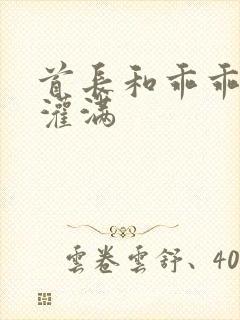 首长和乖乖
灌满
雲卷雲舒、40